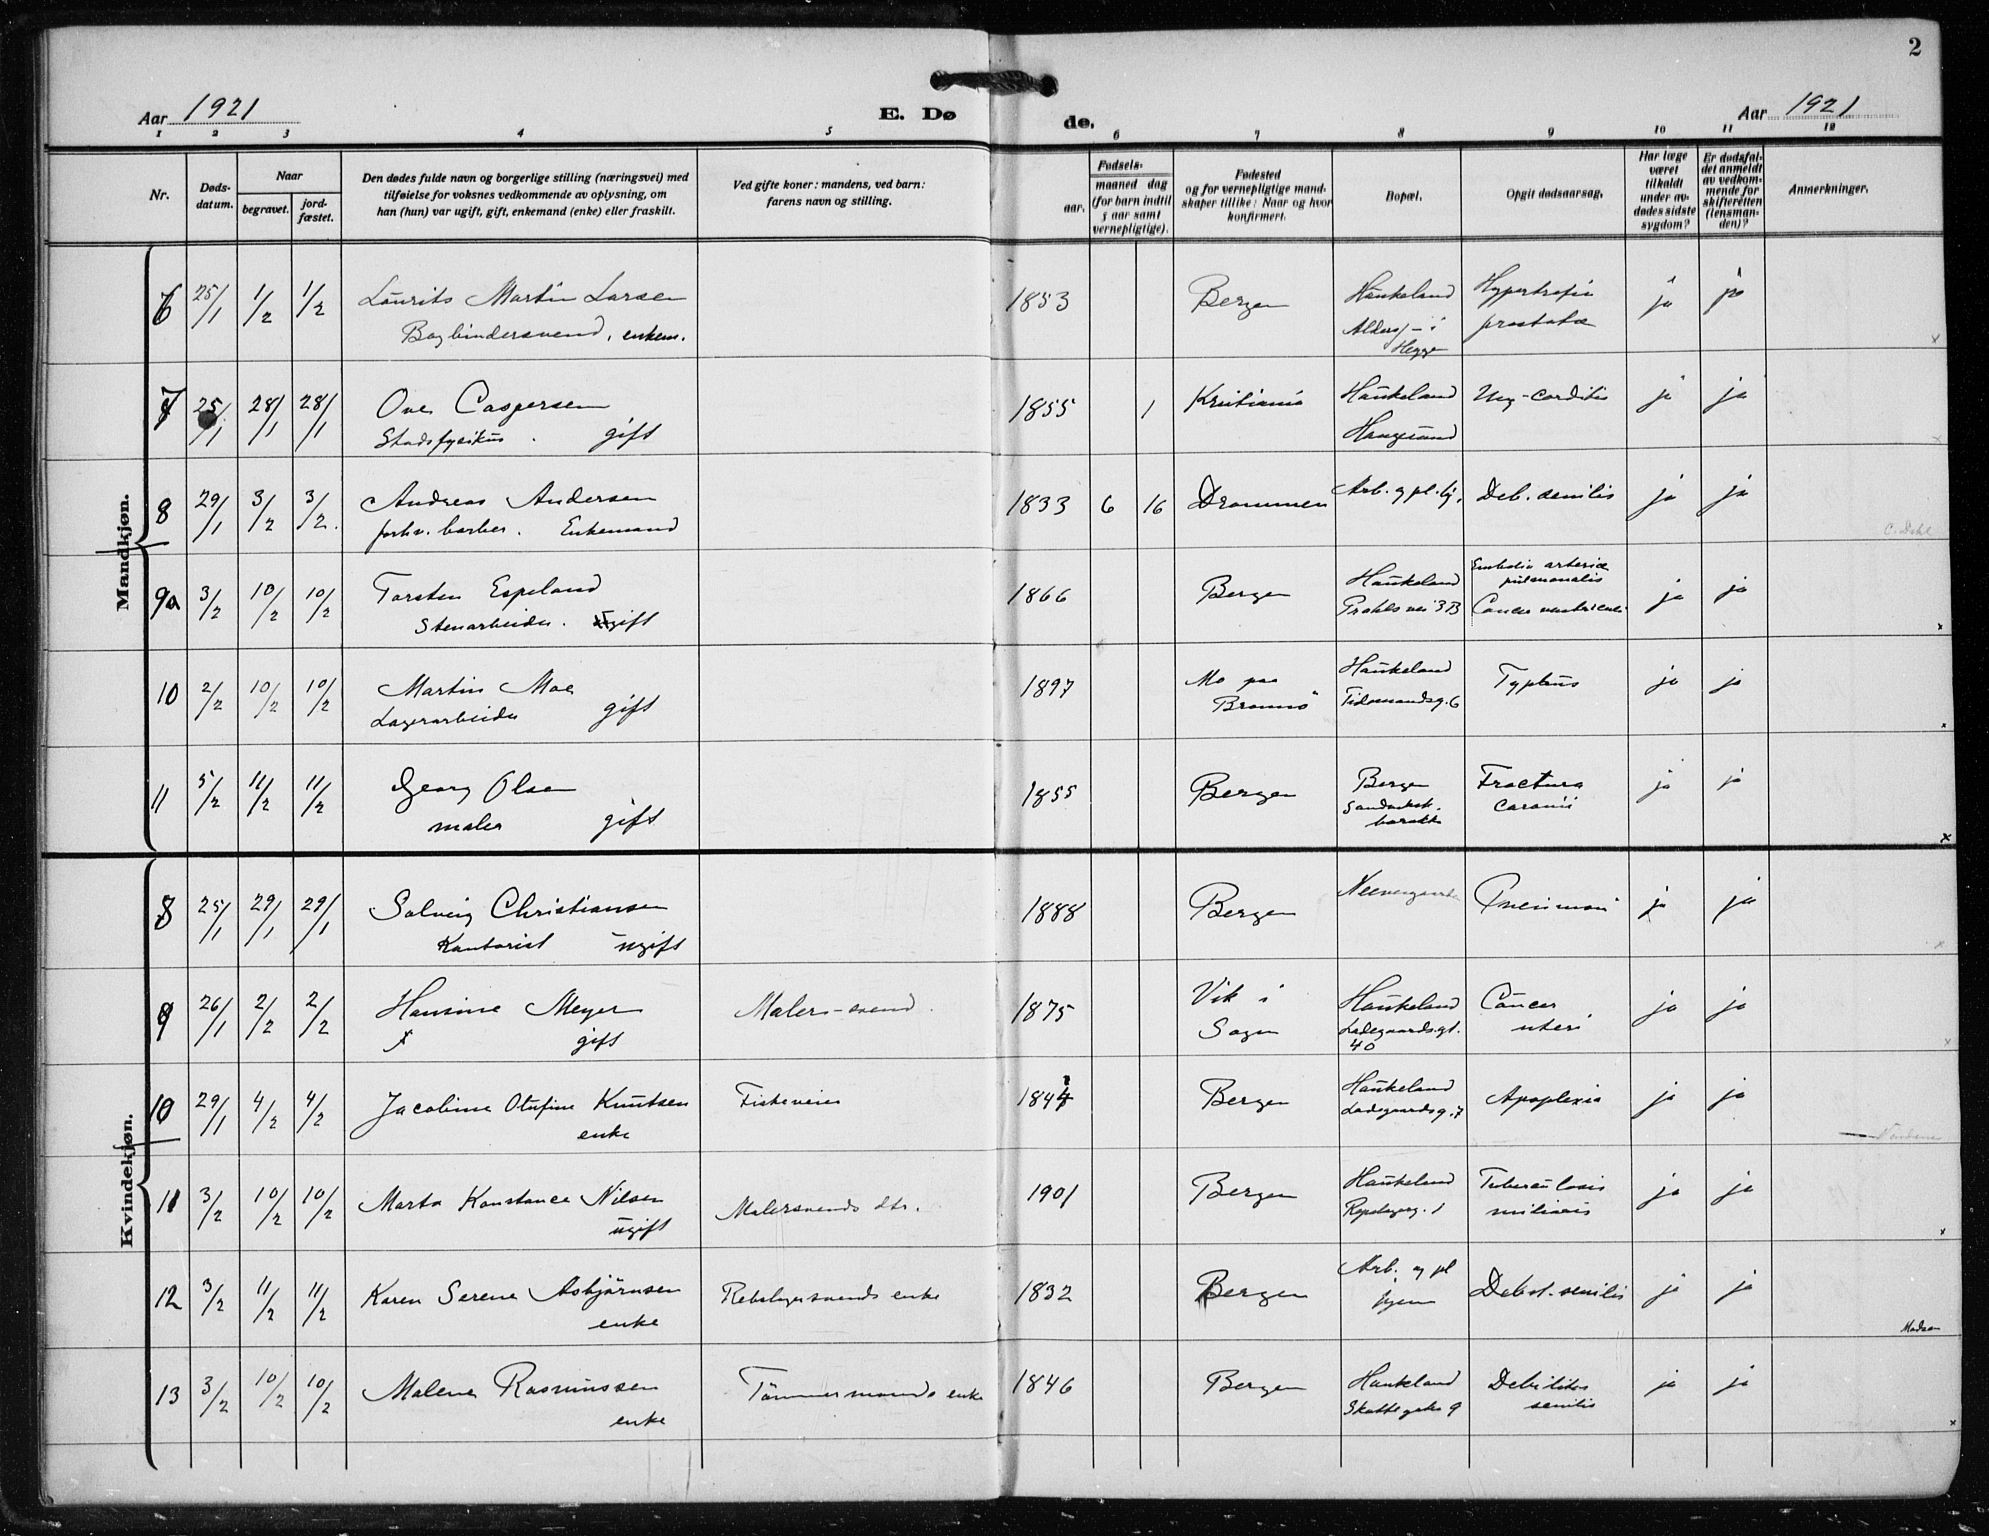 2
Aar 1921
E. Dø
de.
Aar 1921
1 2 3 4 5 6 7 8 9 10 11 12
Nr.
Døds-
datum.
Naar
begravet.
jord-
fæstet.
Den dødes fulde navn og borgerlige stilling (næringsvei) med
tilføielse for voksnes vedkommende av oplysning, om
han (hun) var ugift, gift, enkemand (enke) eller fraskilt.
Ved gifte koner: mandens, ved barn:
farens navn og stilling.
Fødsels-
aar.
maaned dag
(for barn indtil
5 aar samt
vernepligtige).
Fødested
og for vernepligtige mand-
skaper tillike: Naar og hvor
konfirmert.
Bopæl.
Opgit dødsaarsag.
Har læge
været
tilkaldt
under av-
dødes sidste
sygdom?
Er dødsfal-
det anmeldt
av vedkom-
mende for
skifteretten
(lensman-
den)?
Anmerkninger.
Mandkjøn.
6 25/1 1/2 1/2 Laurits Martin Larsen 1853 Bergen Haukeland Hypertrofia ja ja
Bogbindersvend, enkem. Alders i prostatae
Hegge x
7 25/1 28/1 28/1 Ove Caspersen 1855 1 Kristiania Haukeland Myo-carditis ja ja
Stadsfysikus. gift Haugesund x
8 29/1 3/2 3/2. Andreas Andersen 1833 6 16 Drammen Arb. og pl. hj. Deb. senilis ja ja
forhv. barber. Enkemand C. Dahl
9a 3/2 10/2 10/2 Torsten Espeland 1866 Bergen Haukeland Embolia arteriae pulmonalis ja ja
Stenarbeider. gift Prahls vei 3B Cancer ventriculi x
10 2/2 10/2 10/2 Martin Moe 1897 Mo paa Haukeland Typhus ja ja
Lagerarbeider gift Brønnø Tidemandsg. 6 x
11 5/2 11/2 11/2 Georg Olsen 1855 Bergen Bergen Fractura ja ja
maler gift Sandvikst. cranii
barakke x
Kvindekjøn.
8 25/1 29/1 29/1 Solveig Christiansen 1888 Bergen Neevengaarden Pneumoni ja ja
Kontorist ugift x
9 26/1 2/2 2/2 Hansine Meyer Malers-svend. 1875 Vik i Haukeland Cancer ja ja
x gift Sogn Ladegaardsgt. uteri
40 x
10 29/1 4/2 4/2 Jacobine Olufine Knutsen Fiskeveier 1844 Bergen Haukeland Apoplexia ja ja
enke Ladegaardsg. 7
11 3/2 10/2 10/2 Marta Konstance Nilsen Malersvends dtr. 1901 Bergen Haukeland Tuberculosis ja ja
ugift Repslagerg. 1 miliaris x
12 3/2 11/2 11/2 Karen Serene Asbjörnsen Rebslagersvends enke 1832 Bergen Arb. og pl Debil. senilis ja ja
enke hjem Madsen
13 3/2 10/2 10/2 Malene Rasmussen Tömmermands enke 1846 Bergen Haukeland Debilitas ja ja
enke Skottegaten 9 senilis x